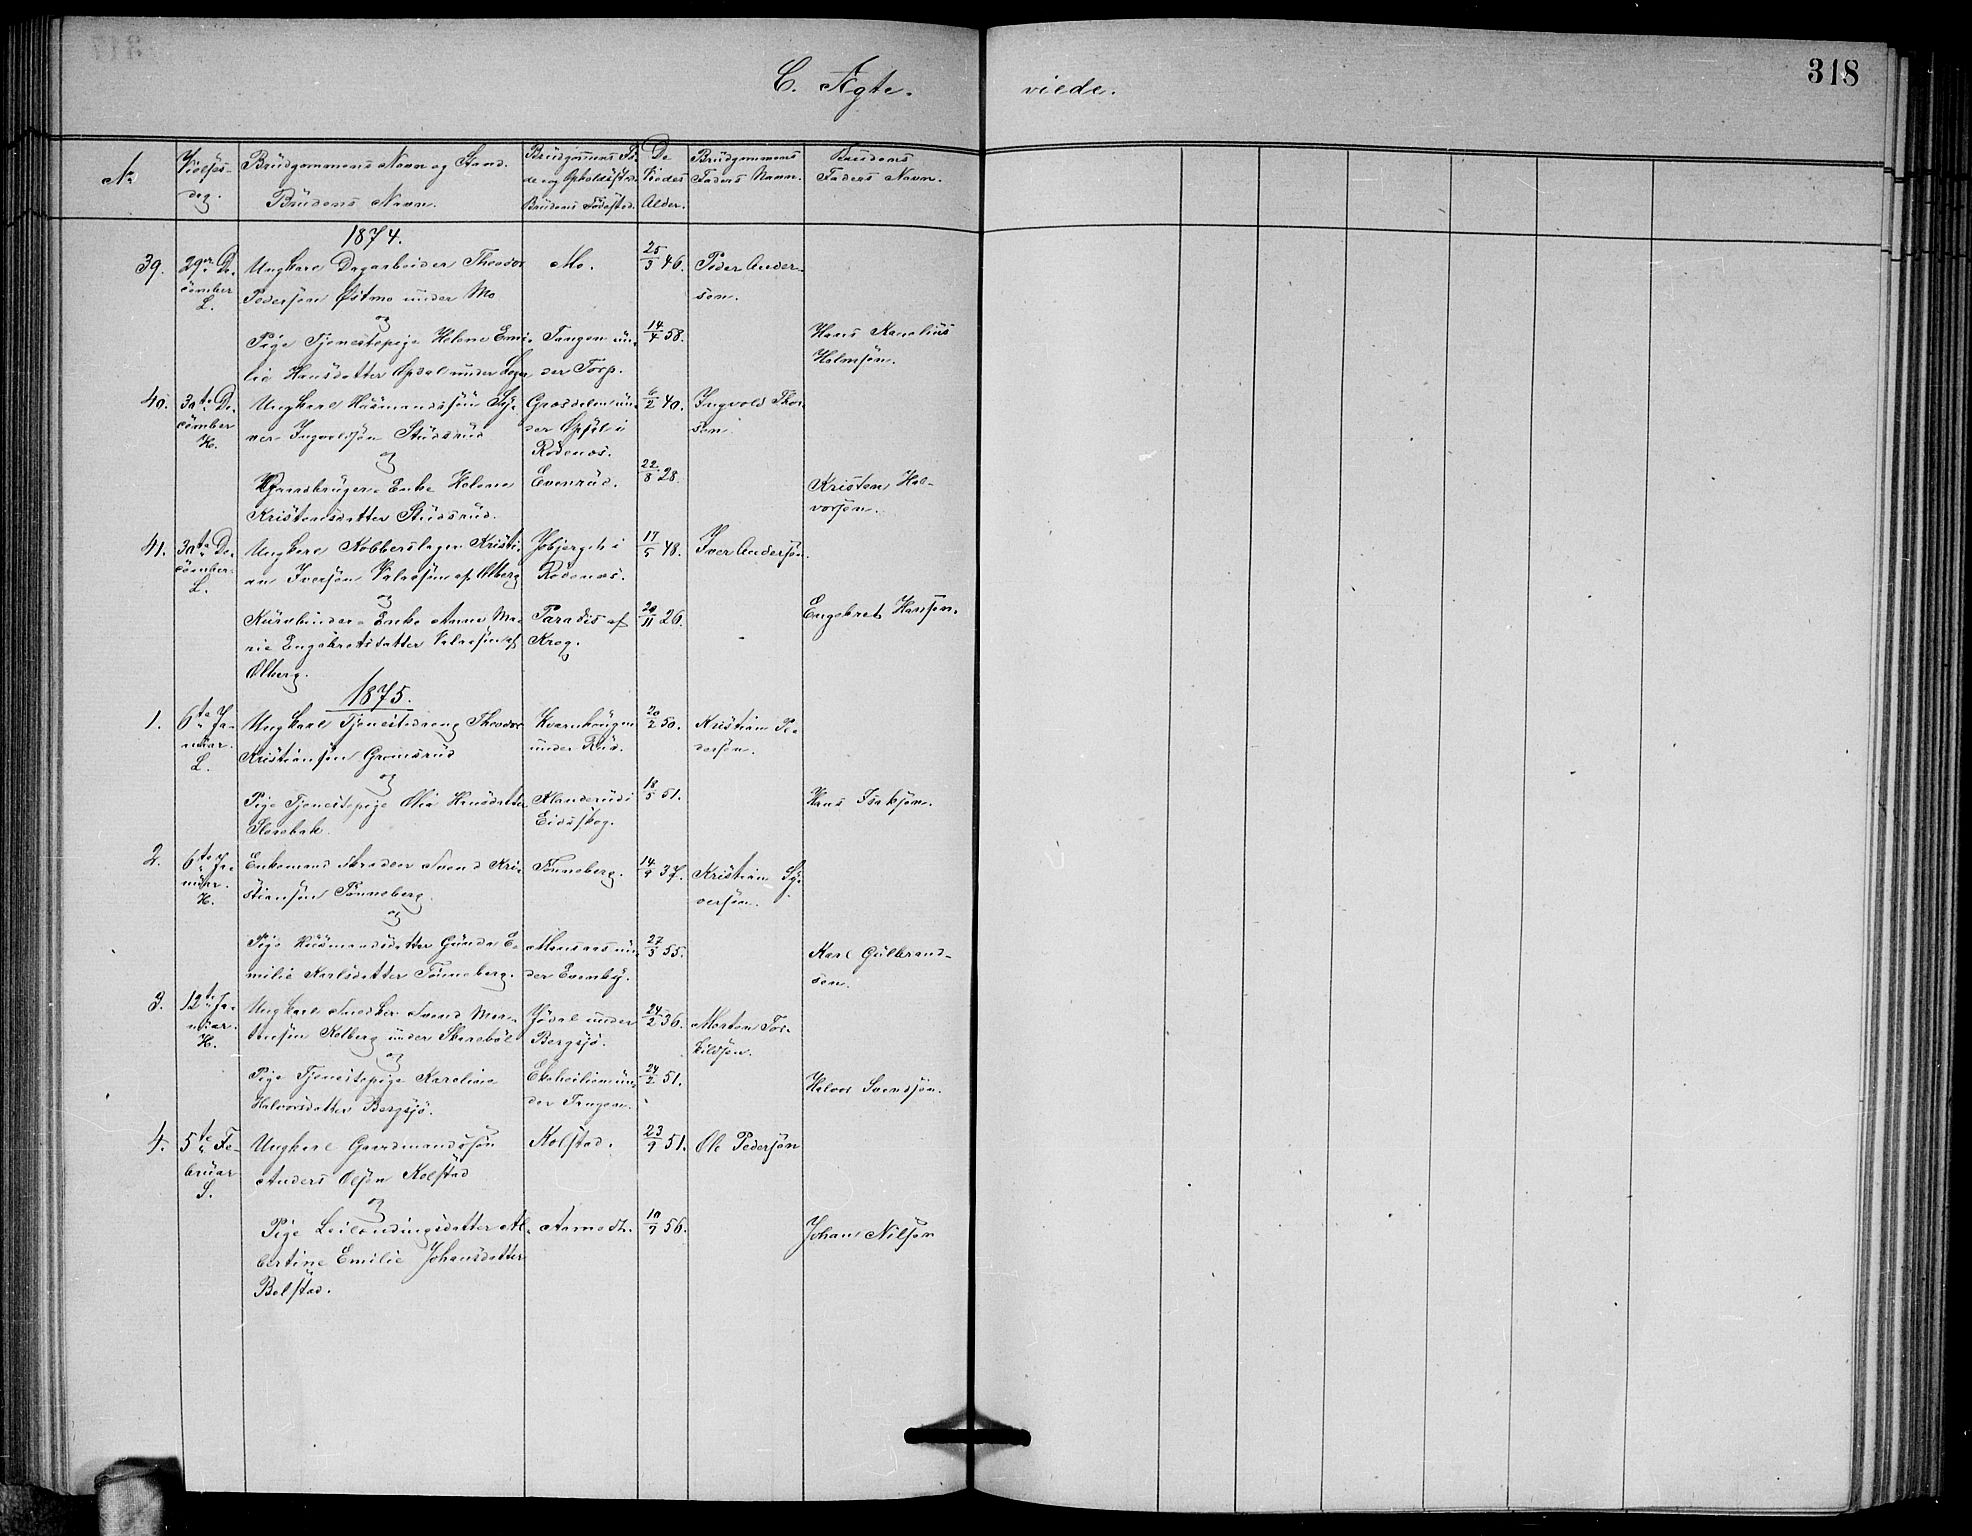 318
C. Ægte- viede.
No
Vielses-
dag.
Brudgommens Navn og Stand.
Brudens Navn.
Brudgommens Fø-
de og Opholdssted.
Brudens Fødested.
De
Viedes
Alder.
Brudgommens
Faders Navn.
Brudens
Faders Navn.
1874.
39.
29de De-
cember
L.
Ungkarl Dagarbeider Theodor
Pedersøn Østmo under Mo
Mo.
25/3 46.
Peder Ander-
søn.
og
Pige Tjenestepige Helene Emi-
lie Hansdatter Opdal under
Tangen un-
der Torp.
14/4 58.
Hans Karelius
Holmsøn.
40.
30te De-
cember
H.
Ungkarl Husmandssøn Sy-
ver Ingvoldsøn Studsrud
Grasdalen un-
der Opsal i
Rødenæs.
6/2 40.
Ingvold Thor-
søn.
og
Gaardbruger-Enke Helene
Kristensdatter Studsrud.
Evenrud.
22/8 28.
Kristen Hal-
vorsøn.
41.
30te De-
cember.
L.
Ungkarl Kobberslager Kristi-
an Iversøn Valaasen af Ølberg
i
Rødenæs.
17/5 48.
Iver Andersøn.
og
Kurvbinder-Enke Anne Ma-
rie Engebretsdatter Valaasen af
Ølberg.
Paradis af
Krog.
20/11 26.
Engebret Hansøn.
1875.
1.
6te Ja-
nuar.
L.
Ungkarl Tjenestedreng Theodor
Kristiansøn Gromsrud
Kvernhougen
under Rud.
20/2 50.
Kristian Pe-
dersøn.
og
Pige Tjenestepige Olia Hansdatter
Slorebak.
i
Eidsskog.
18/5 51.
Hans Isaksøn.
2.
6te Ja-
nuar.
H.
Enkemand Skræder Svend Kri-
stiansøn Tønneberg.
Tønneberg.
14/9 37.
Kristian Sy-
versøn.
og
Pige Husmandsdatter Gunda E-
milie Karlsdatter Tønneberg.
Monsaas un-
der Evenby.
27/3 55.
Karl Gulbrand-
søn.
3.
12te Ja-
nuar.
H.
Ungkarl Snedker Svend Mor-
tensøn Kolberg under Skarebøl
Jødal under
Bergsjø.
24/2 36.
Morten Tor-
kildsøn.
og
Pige Tjenestepige Karoline
Halvorsdatter Bergsjø.
un-
der Tangen.
24/2 51.
Halvor Svendsøn.
4.
5te Fe-
bruar
S.
Ungkarl Gaardmandssøn
Anders Olsøn Kolstad
Kolstad.
23/9 51.
Ole Pedersøn
og
Pige Leilændingsdatter Al-
bertine Emilie Johansdatter
Bolstad.
Aamodt.
10/7 56.
Johan Nilsøn